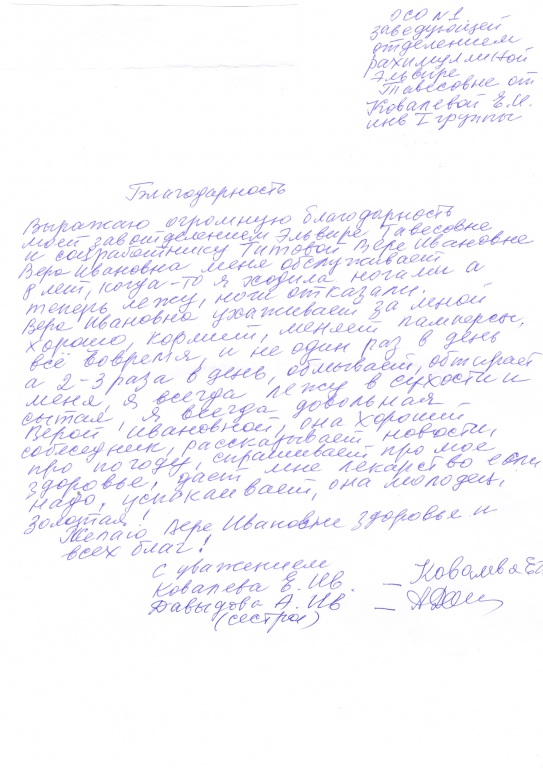 ОСО №1
заведующей
отделением
Рахимуллиной
Эльвире
Тавесовне от
Ковалевой Е.И.
инв I группы
Благодарность
Выражаю огромную благодарность
моей завотделением Эльвире Тавесовне
и соцработнику Титовой Вере Ивановне
Вера Ивановна меня обслуживает
8 лет, когда-то я ходила ногами а
теперь лежу, ноги отказали.
Вера Ивановна ухаживает за мной
хорошо, кормит, меняет памперсы,
всё вовремя, и не один раз в день
а 2-3 раза в день, обмывает, обтирает
меня, я всегда лежу в сухости и
сытая, я всегда довольная
Верой Ивановной, она хороший
собеседник, рассказывает новости,
про погоду, спрашивает про мое
здоровье, дает мне лекарство если
надо, успокаивает, она молодец,
золотая!
Желаю Вере Ивановне здоровье и
всех благ!
С уважением
Ковалева Е. Ив. –
Давыдова А. Ив –
(сестра)